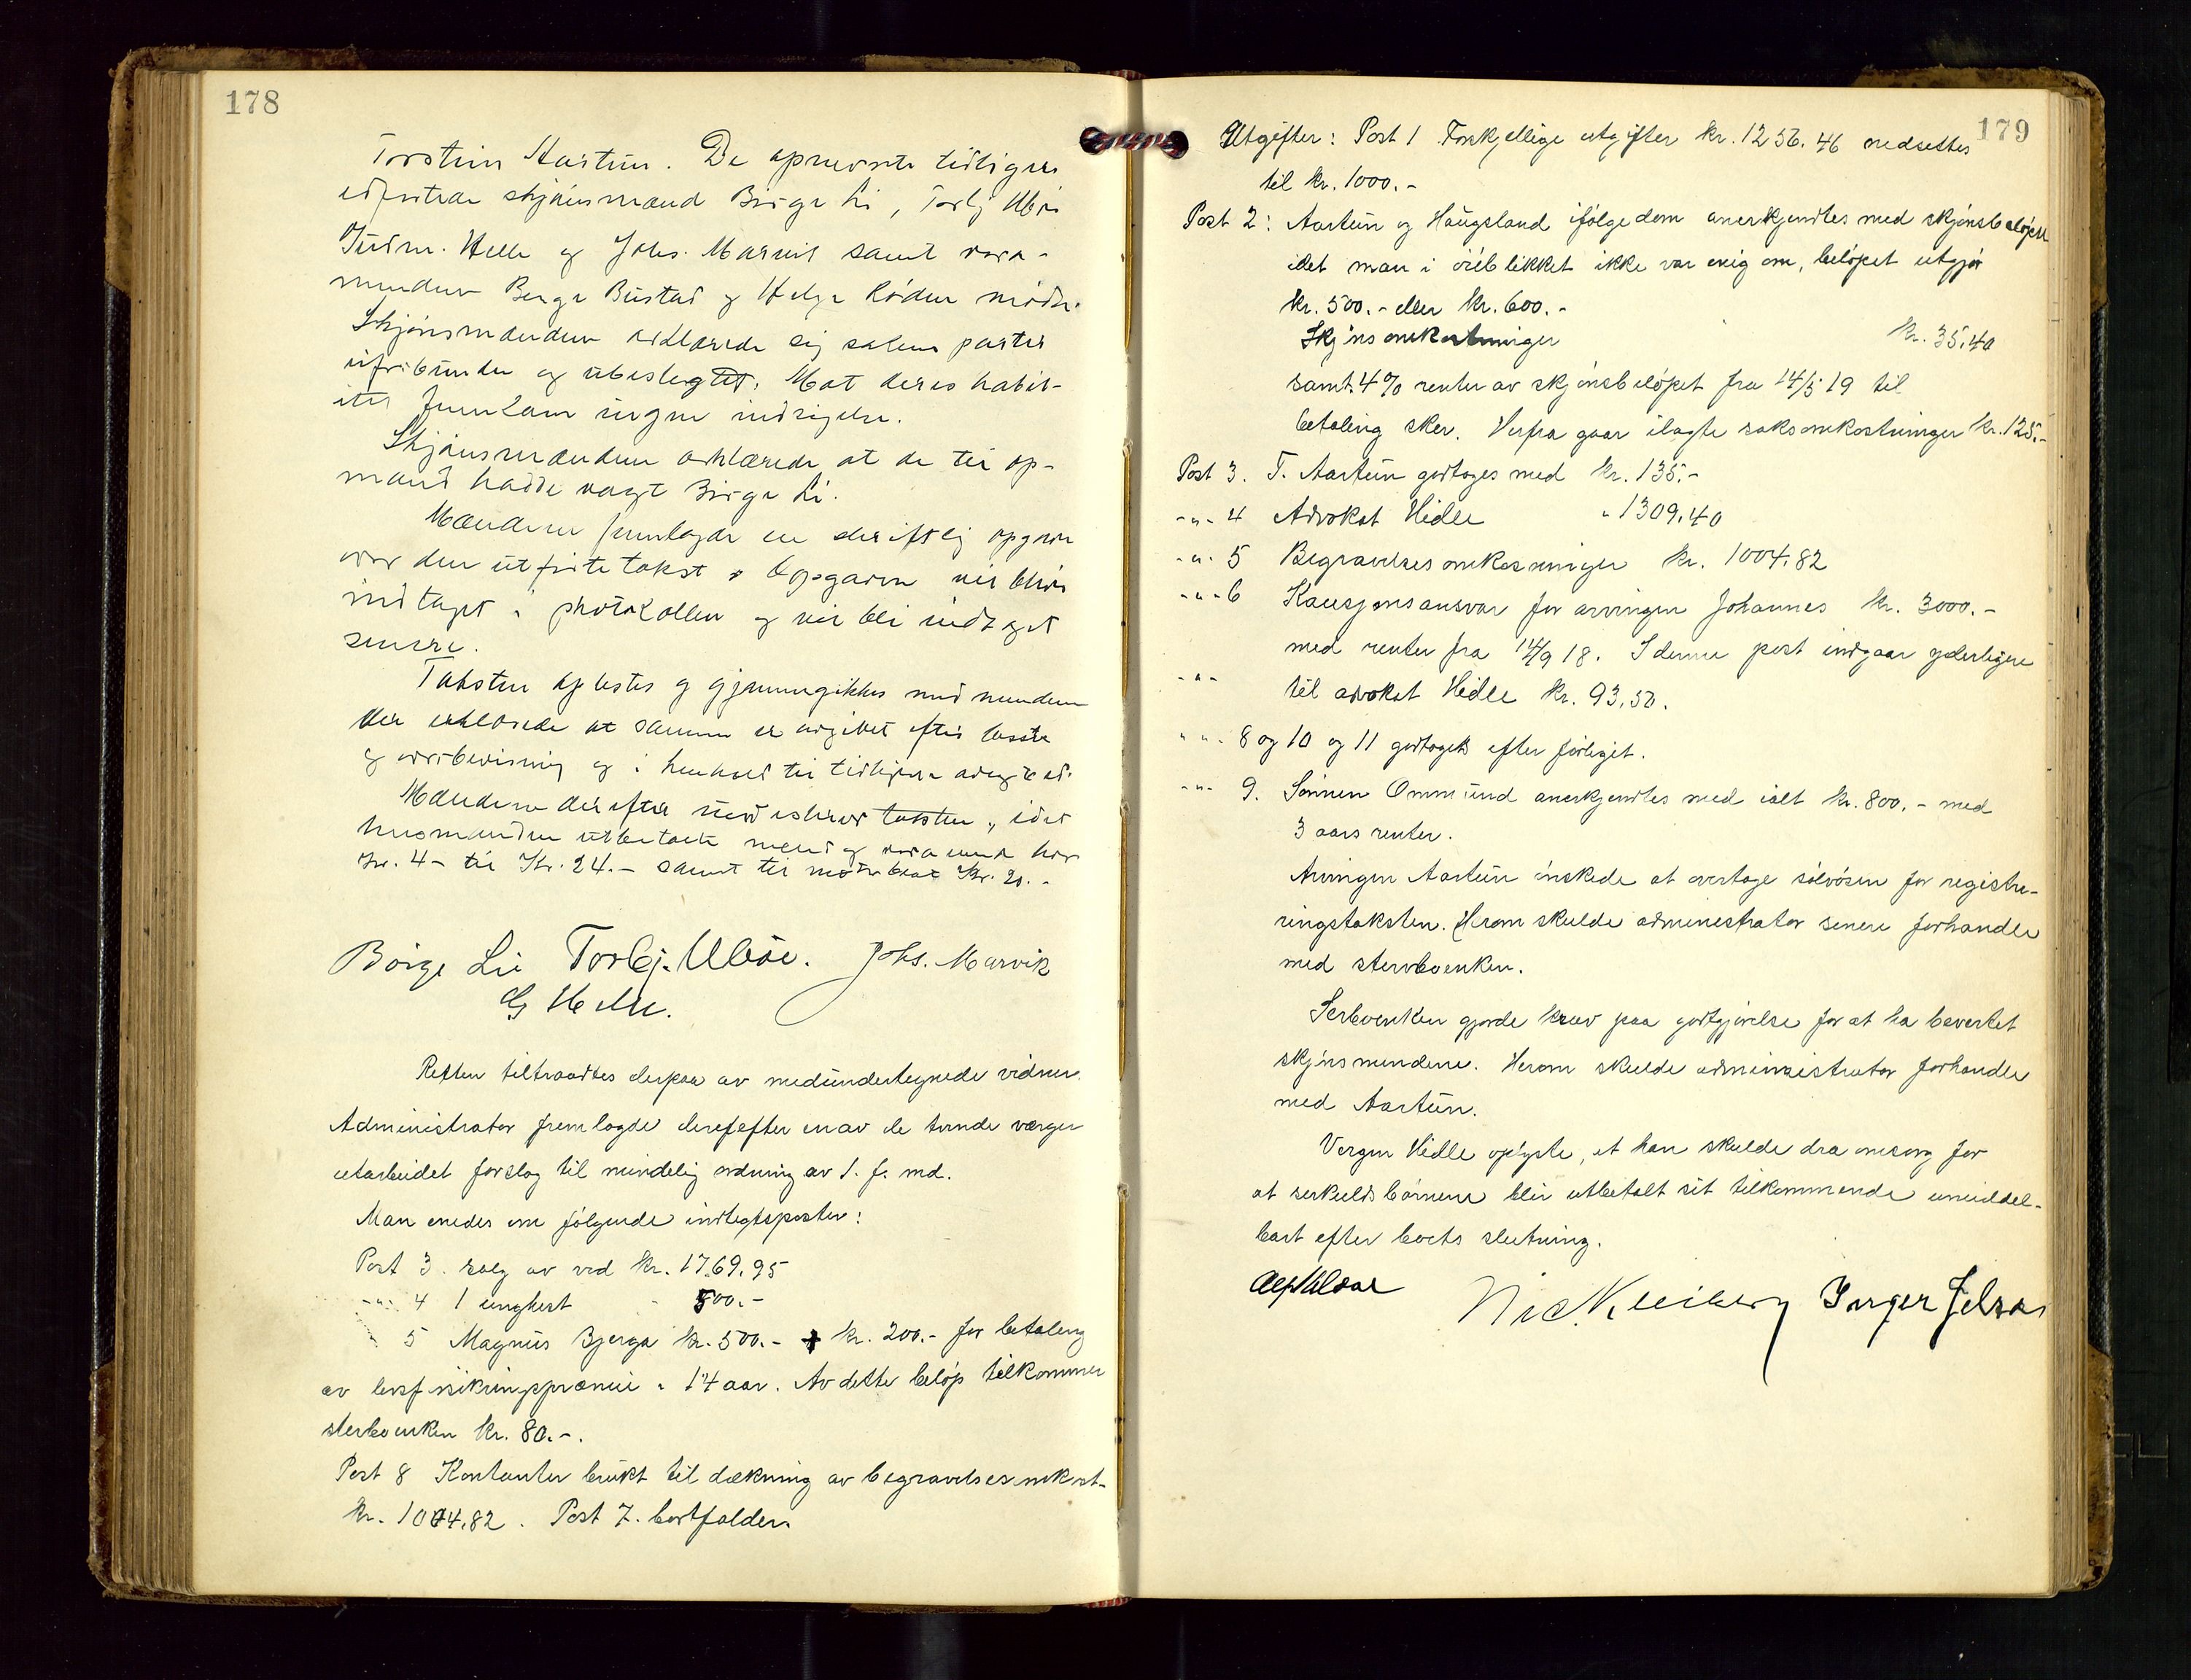 178
Torstein Aartun. De opnevnte tidligere
edfestede skjønsmænd Børge Li, Torbj Ubøe
Gudm. Helle og Johs. Marvik samt vara-
mændene Berge Bustad og Helge Røden mødte.
Skjønsmændene erklærede sig saken parter
uforbunden og ubeslegtet. Mot deres habil-
itet fremkom ingen indsigelse.
Skjønsmændene erklærede at de til op-
mand hadde valgt Børge Li.
Mændene fremlagde en skriftlig opgave
over den utførte takst. Opgaven vil blive
indtaget i protokollen og vil bli indtaget
senere.
Taksten oplestes og gjennemgikkes med mændene
der erklærede at samme er avgivet efter beste
og overbevisning og i henhold til tidligere avlagt ed.
Mændene derefter underskrev taksten, idet
kr. 4- til Kr. 24.- samt til Kr. 20.-
Børge Lie Torbj. Ubøe. Johs. Marvik
G Helle.
Retten tiltraadtes derpaa av medundertegnede vidner.
Administrator fremlagde derefefter en av de tvende værger
utarbeidet forslag til mindelig ordning av 1. f. md.
Man enedes om følgende indtegtsposter:
Post 3. salg av ved kr. 1769.95
-"- 4 1 unghest " 500.-
5 Magnus Bjerga kr. 500.- + kr. 200.- for betaling
av livsforsikringspræmie i 14 aar. Av dette beløp tilkommer
sterboenken kr. 80.-.
Post 8 Kontanter brukt til dækning av begravelsesomkost-
kr. 1004.82. Post 7. bortfalder.
179
Utgifter: Post 1 Forskjellige utgifter kr. 1256.46 nedsettes
til kr. 1000.-
Post 2: Aartun og Haugsland ifølge dom anerkjendtes med skjønsbeløpet
idet man i øieblikket ikke var enig om, beløpet utgjør
kr. 500.- eller kr. 600.-
Skjønsomkostninger kr. 35.40
samt 4% renter av skjønsbeløpet fra 14/5 19 til
betaling sker. Herfra gaar ilagte saksomkostninger kr. 125.-
Post 3. T. Aartun godtages med kr. 135.-
-"- 4 Advokat Hidle " 1309.40
-"- 5 Begravelsesomkosninger kr. 1004.82
-"- 6 Kausjonsansvar for arvingen Johannes kr. 3000.-
med renter fra 14/9 18. I denne post indgaar yderligere
-"- til advokat Hidle kr. 93,50.
-"- 8 og 10 og 11 godtoges efter forliget.
-"- 9. Sønnen Ommund anerkjendtes med ialt kr. 800.- med
3 aars renter.
Arvingen Aartun ønskede at overtage sølvøsen for registre-
ringstaksten. Herom skulde administrator senere forhandle
med stervboenken.
Serboenken gjorde krav paa godtgjørelse for at ha bevertet
skjønsmendene. Herom skulde administrator forhandle
med Aartun.
Vergen Hidle oplyste, at han skulde dra omsorg for
at serkuldsbørnene blir utbetalt sit tilkommende umiddel-
bart efter boets slutning.
Inger Jelsa